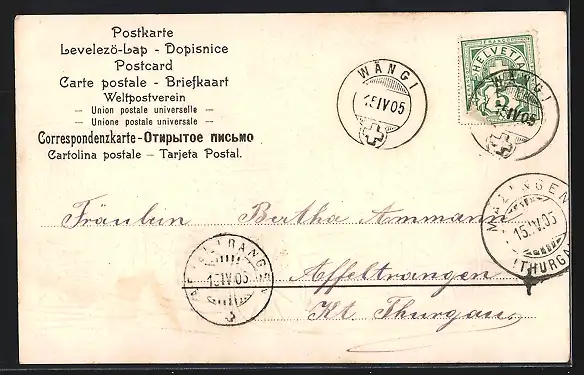 Postkarte
Levelező-Lap - Dopisnice
Postcard
Carte postale - Briefkaart
Weltpostverein
— Union postale universelle —
— Unione postale universale —
Correspondenzkarte - Открытое письмо
Cartolina postale — Tarjeta Postal.
WÄNGI
15 IV 05
HELVETIA
WÄNGI
15 IV 05
15.IV.05
(THURG
Fräulein Bertha Ammann
Affeltrangen
Kt. Thurgau
AFFELTRANGEN
15 IV 05